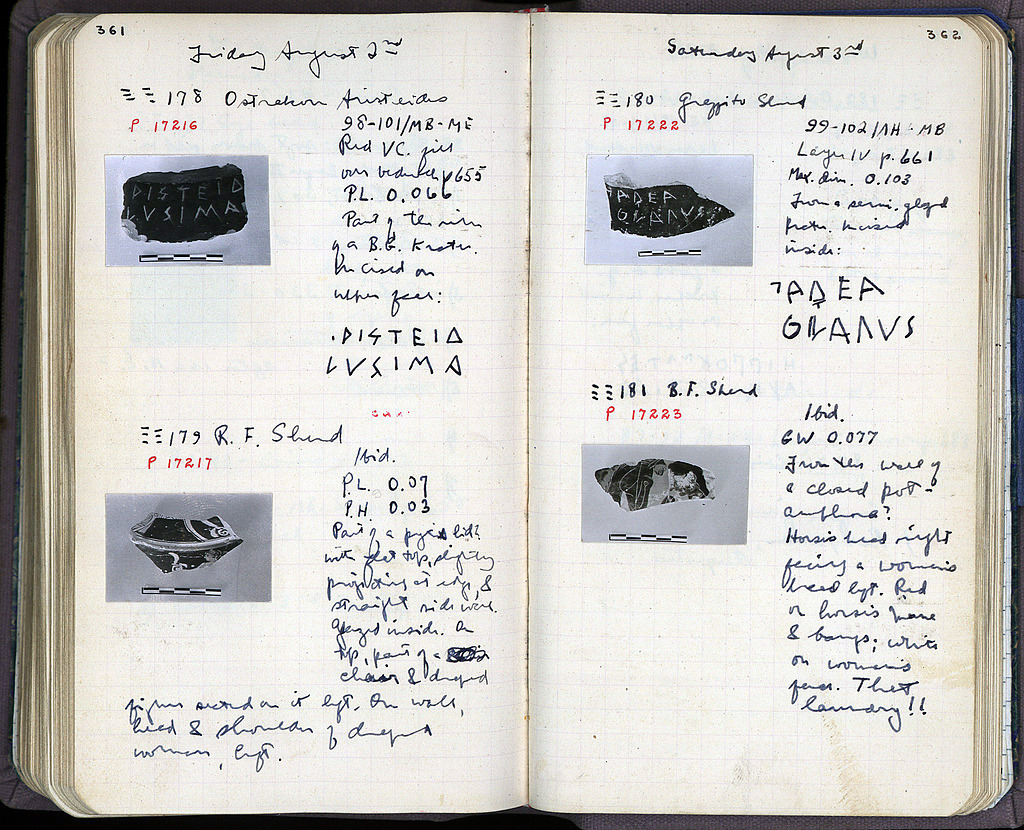 361
Friday August 2nd
ΞΞ 178 Ostrakon Aristeides
P 17216
98-101/ΜΒ-ΜΕ
Red VC. fill
our bedrock p 655
P.L. 0.066
Part of the rim
of a B.G. Krater.
Incised on
upper face:
ΡΙSΤΕΙΔ
LVSIMA
·ΡΙSΤΕΙΔ
LVSIMA
ΞΞ 179 R. F. Sherd
P 17217
Ibid.
P.L. 0.07
P.H. 0.03
Part of a pyxis lid?
with flat top, slightly
projecting at edge, &
straight side wall.
Glazed inside. On
top, part of a
chair & draped
figure seated on it left. On wall,
head & shoulders of draped
woman, left.
362
Saturday August 3rd
ΞΞ 180 Graffito Sherd
P 17222
99-102/ΛΗ-ΜΒ
Layer IV p. 661
Max. dim. 0.103
From a semi-glazed
krater. Incised
inside:
ΑΔΕΑ
GLANVS
ΑΔΕΑ
GLANVS
ΞΞ 181 B.F. Sherd
P 17223
Ibid.
GW 0.077
From the wall of
a closed pot -
amphora?
Horse's head right
facing a woman's
head left. Red
on horse's mane
& bangs; white
on woman's
face. That
laundry!!